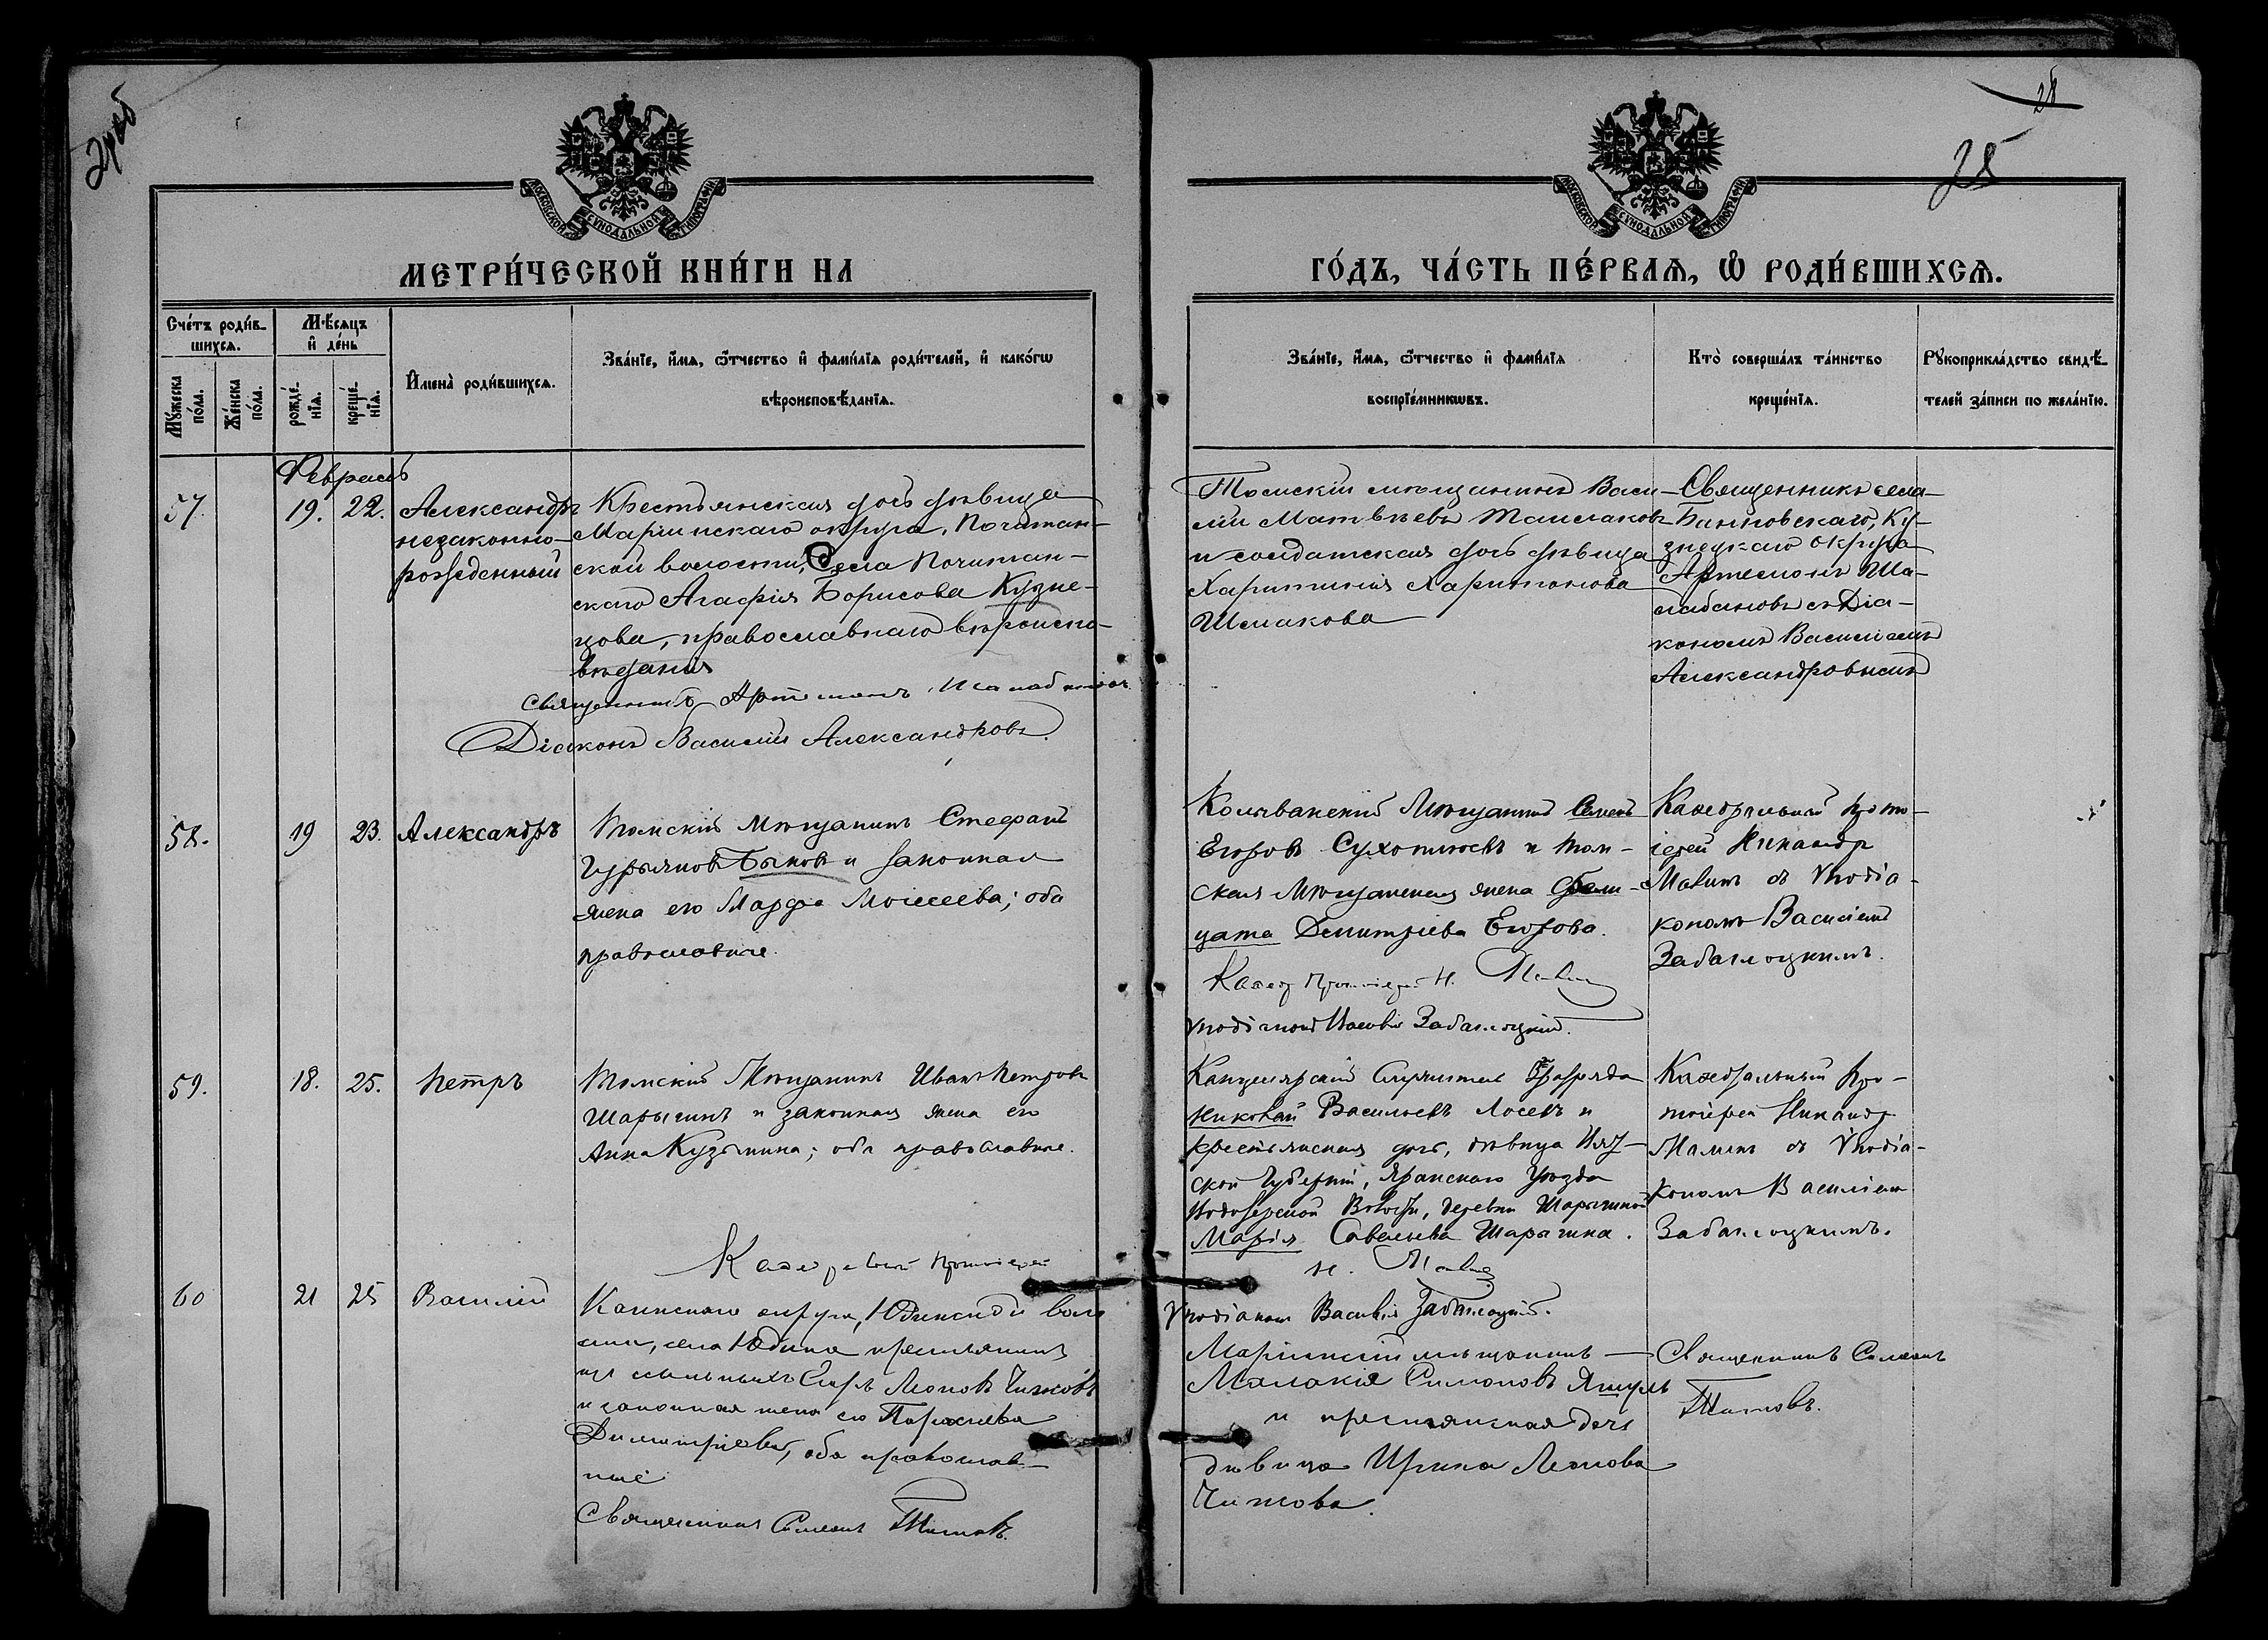 28
25
МОСКОВСКОЙ СУНОДАЛЬНОЙ ТИПОГРАФІИ
МОСКОВСКОЙ СУНОДАЛЬНОЙ ТИПОГРАФІИ
МЕТРИ́ЧЕСКОЙ КНИ́ГИ НА
ГО́ДЪ, ЧА́СТЬ ПЕ́РВАѦ, Ѡ҆ РОДИ́ВШИХСѦ.
Сче́тъ роди́в-
шихсѧ.
Мꙋ́жеска по́ла.
Же́нска по́ла.
Мѣ́сѧцъ
и҆ де́нь
рожде́-
нїѧ.
креще́-
нїѧ.
И҆мена̀ роди́вшихсѧ.
Зва́нїе, и҆́мѧ, ѻ҆́тчество и҆ фами́лїѧ роди́телей, и҆ како́гѡ
вѣроисповѣ́данїѧ.
Зва́нїе, и҆́мѧ, ѻ҆́тчество и҆ фами́лїѧ
воспрїе́мникѡвъ.
Кто̀ соверша́лъ та́инство
креще́нїѧ.
Рꙋкоприкла́дство свидѣ́-
телей за́писи по жела́нїю.
Февраль
57.
19. 22.
Александръ
незаконно-
рожденный
Крестьянская дочь девица
Маріинскаго округа, Почитан-
ской волости, Села Почитан-
скаго Агафія Борисова Кузне-
цова, православнаго вѣроиспо-
вѣданія
Священникъ Артемонъ Шалабановъ
Діаконъ Василій Александровъ.
Томскій мѣщанинъ Васи-
лій Матвѣевъ
и солдатская дочь дѣвица
Харитинія Харитонова
Шмакова
Священникъ села
Ку-
знецкаго округа
Артемонъ Ша-
лабановъ съ Діа-
кономъ Василіемъ
Александровымъ
58.
19 23.
Александръ
Томскій Мѣщанинъ Стефанъ
Гурьяновъ Быковъ и законная
жена его Марфа Моисеева; оба
православные.
Колыванскій Мѣщанинъ Семенъ
Егоровъ и Том-
ская Мѣщанская жена
Димитріева Егорова.
Каѳед Протоіерей Н. Малинъ
Ѵподіаконъ Василій Заблоцкій.
Каѳедральный Прото-
іерей Никандръ
Малинъ съ Ѵподіа-
кономъ Василіемъ
Заблоцкимъ.
59.
18. 25.
Петръ
Томскій Мѣщанинъ Иванъ Петровъ
Шарыгинъ и законная жена его
Анна Кузьмина; оба православные.
Каѳедральный Протоіерей
Канцелярскій Служитель разряда
Николай Васильевъ Лосевъ и
крестьянская дочь, дѣвица Вят-
ской Губерніи, Яранскаго Уѣзда
Волости, деревни Шарыгиной
Марія Савельева Шарыгина.
Н. Малинъ
Ѵподіаконъ Василій Заблоцкій.
Каѳедральный Про-
тоіерей Никандръ
Малинъ съ Ѵподіа-
кономъ Василіемъ
Заблоцкимъ.
60
21 25
Василій
Каинскаго округа, Юдинской воло
сти, села Юдина крестьянинъ
изъ ссыльныхъ Леоновъ Чижовъ
и законная жена его Параскева
Димитріева, оба православ-
ные
Священникъ Симеонъ Титовъ.
Маріинскій мѣщанинъ
Малахія Симоновъ
и крестьянская дочь
дѣвица Ирина Леонова
Чижова.
Священникъ Симеонъ
Титовъ.